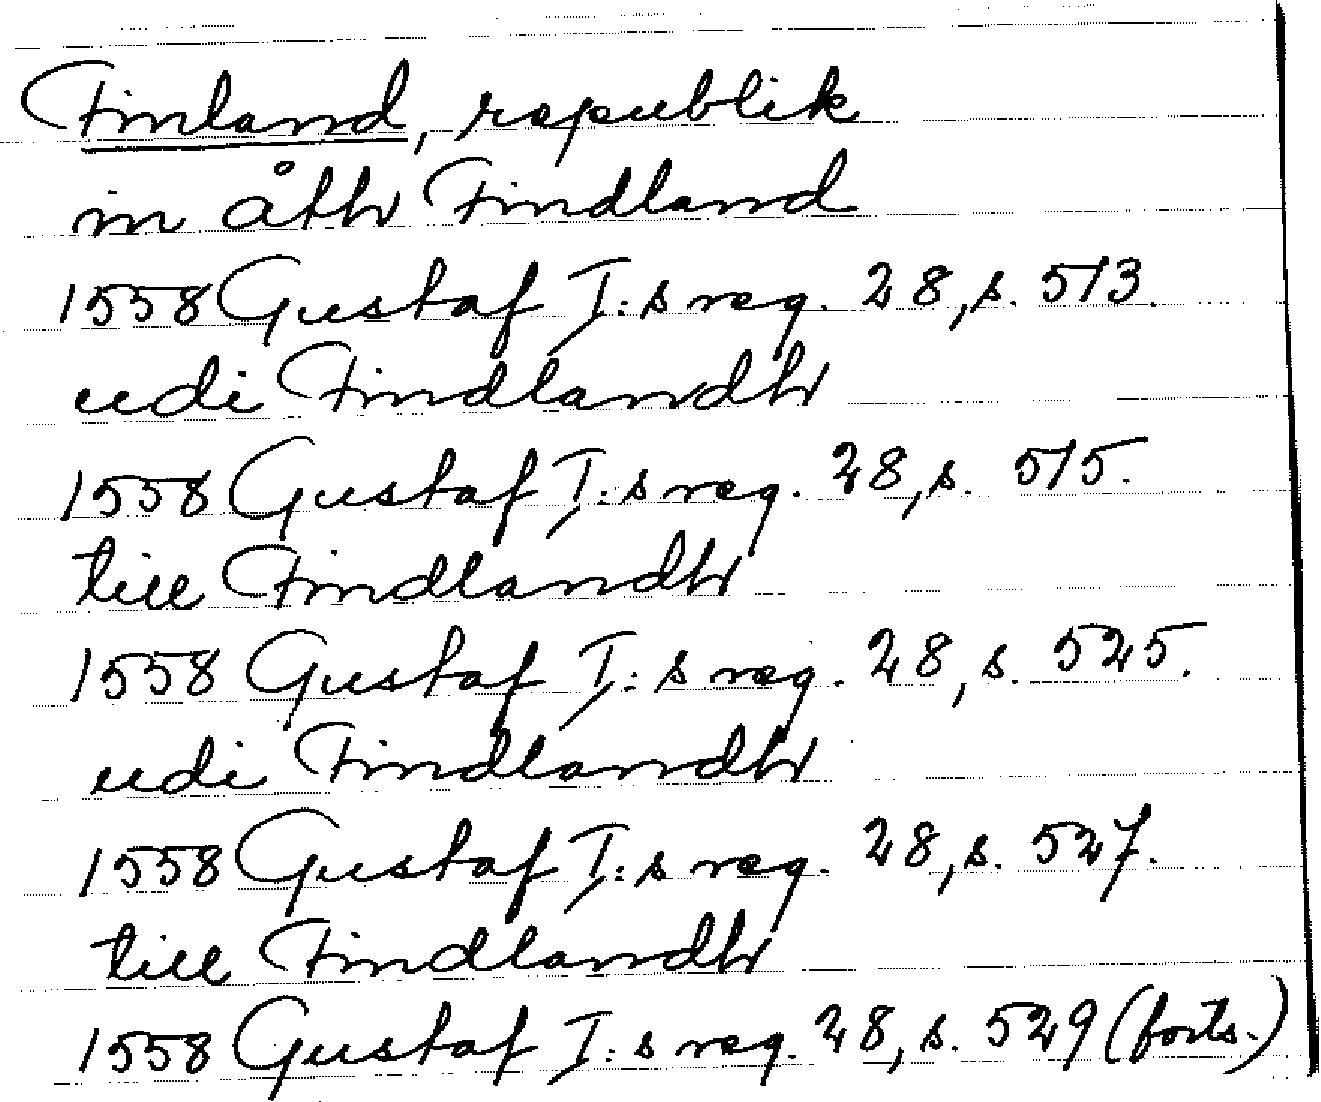 Finland, republik
in åth Findland
1558 Gustaf I:s reg. 28, s. 513.
udi Findlandh
1558 Gustaf I:s reg. 28, s. 515.
till Findlandh
1558 Gustaf I:s reg. 28, s. 525.
udi Findlandh
1558 Gustaf I:s reg. 28, s. 527.
till Findlandh
1558 Gustaf I:s reg. 28, s. 529 (forts.)